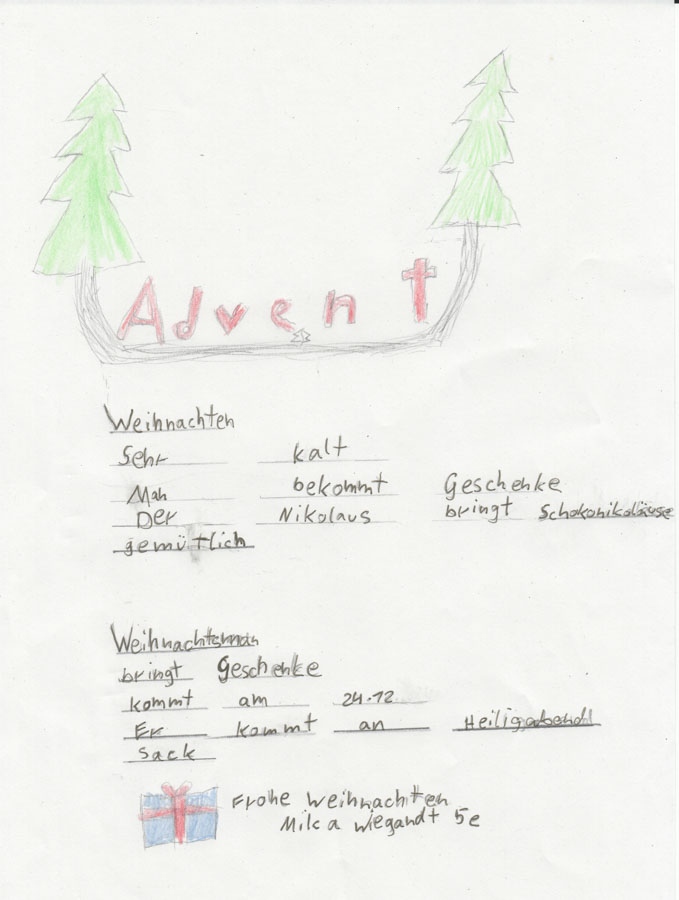 Advent
Weihnachten
Sehr kalt
Man bekommt Geschenke
Der Nikolaus bringt Schokonikoläuse
gemütlich
Weihnachtsman
bringt Geschenke
kommt am 24.12
Er kommt an Heiligabend
Sack
Frohe Weihnachtten
Milca Wiegandt 5e